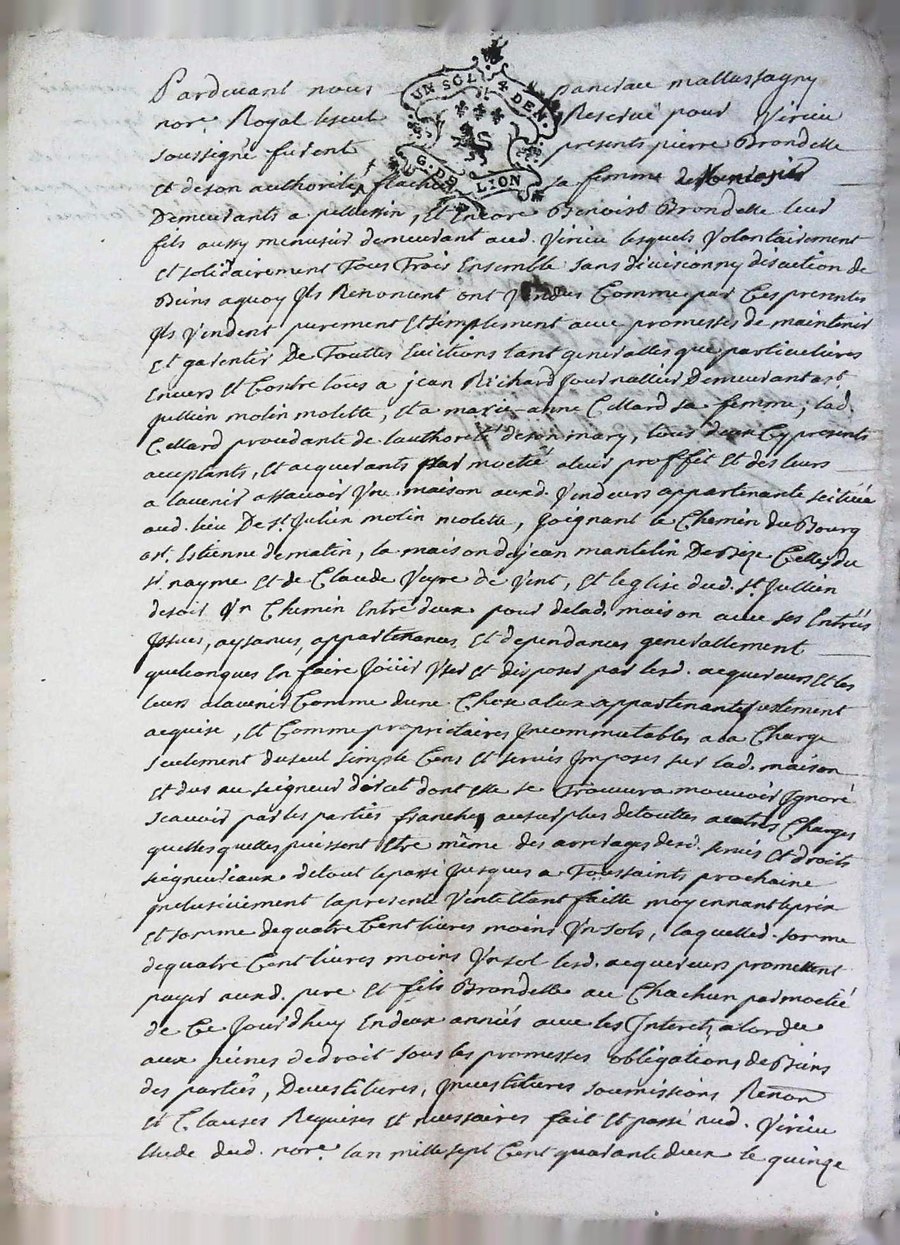 Pardevant nous
UN SOL 4 DEN.
G. DE LION
nore. Royal Reservé pour Virieu
soussigné furent presents pierre Brondelle
et de son authorité flachi sa femme
Demeurants a pellussin, Et Encore Benoist Brondelle leur
fils aussy menusir demeurant aud. Virieu lesquels Volontairement
Et solidairement Tous Trois Ensemble sans division ny discution de
Biens aquoy Ils Renoncent ont Vendus Comme par Ces presentes
Ils Vendent purement Et simplement avec promesses de maintenir
Et garentir De Touttes Evictions tant generalles que particulieres
Envers Et Contre tous a jean Richard Journallier Demeurant a st.
Jullien molin molette, Et a marie anne Cellard sa femme, lad.
Cellard procedante de lauthorité de son mary, tous deux Cy presents
acceptants, Et acquerants par moctié a leur proffit Et des leurs
a lavenir assavoir Vne maison auxd. Vendeurs appartenante scituée
aud. lieu De st. Julien molin molette, Joignant le Chemin du Bourg
a st. Estienne de matin, la maison de jean mantelin De Bize Celles du
sr. nayme Et de Claude Veyre de Vent, Et leglise dud. st. Jullien
de soir Vn Chemin Entre deux pour de lad. maison avec ses Entrées
Issues, aysances, appartenances Et dependances generallement
quelconques En faire Joüir User Et disposer par lesd. acquereurs Et les
leurs a lavenir Comme dune Chose a eux appartenante justement
acquise, Et Comme proprietaires Incommutables a la Charge
seulement du seul simple Cens Et servis Imposes sur lad. maison
Et dus au seigneur direct dont elle se Trouvera mouvoir Ignoré
scavoir par les parties franche, au surplus de touttes autres Charges
quelles quelles puissent Etre même des arrerages desd. servis Et droits
seigneuriaux de tout le passé Jusques a Toussaints prochaine
Inclusivement la presente Vente Etant faitte moyennant le prix
Et somme de quatre Cent livres moins Un sols, laquelle d. somme
de quatre Cent livres moins Un sol lesd. acquereurs promettent
payer auxd. pere Et fils Brondelle au Chacun par moctié
de Ce Jourdhuy En deux années avec les Interets a lordre
aux peines de droit sous les promesses obligations de Biens
des parties, Devestitures, Investitures soumissions Renon
Et Clauses Requises Et necessaires fait Et passé aud. Virieu
Etude dud. nore. lan mille sept Cent quarante deux le quinze